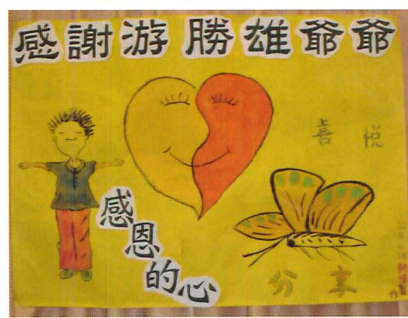 感謝游勝雄爺爺
喜悅
感恩的心
分享